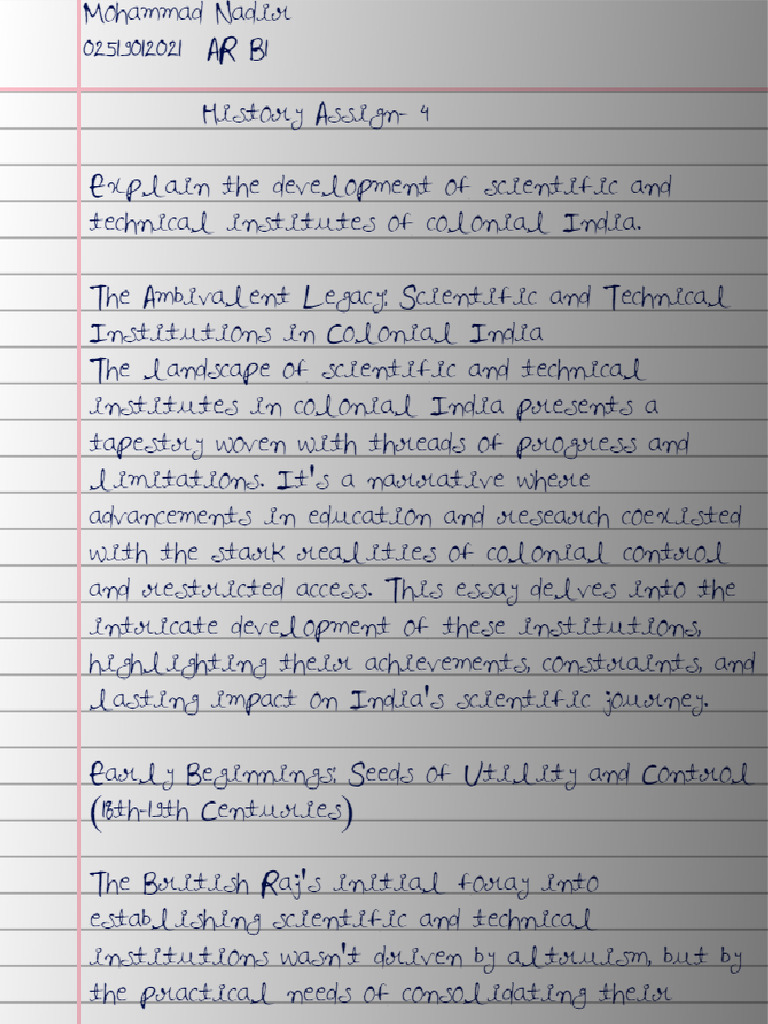 Mohammad Nadir
02519012021 AR B1
History Assign- 4
Explain the development of scientific and
technical institutes of colonial India.
The Ambivalent Legacy: Scientific and Technical
Institutions in Colonial India
The landscape of scientific and technical
institutes in colonial India presents a
tapestry woven with threads of progress and
limitations. It's a narrative where
advancements in education and research coexisted
with the stark realities of colonial control
and restricted access. This essay delves into the
intricate development of these institutions,
highlighting their achievements, constraints, and
lasting impact on India's scientific journey.
Early Beginnings: Seeds of Utility and Control
(18th-19th Centuries)
The British Raj's initial foray into
establishing scientific and technical
institutions wasn't driven by altruism, but by
the practical needs of consolidating their